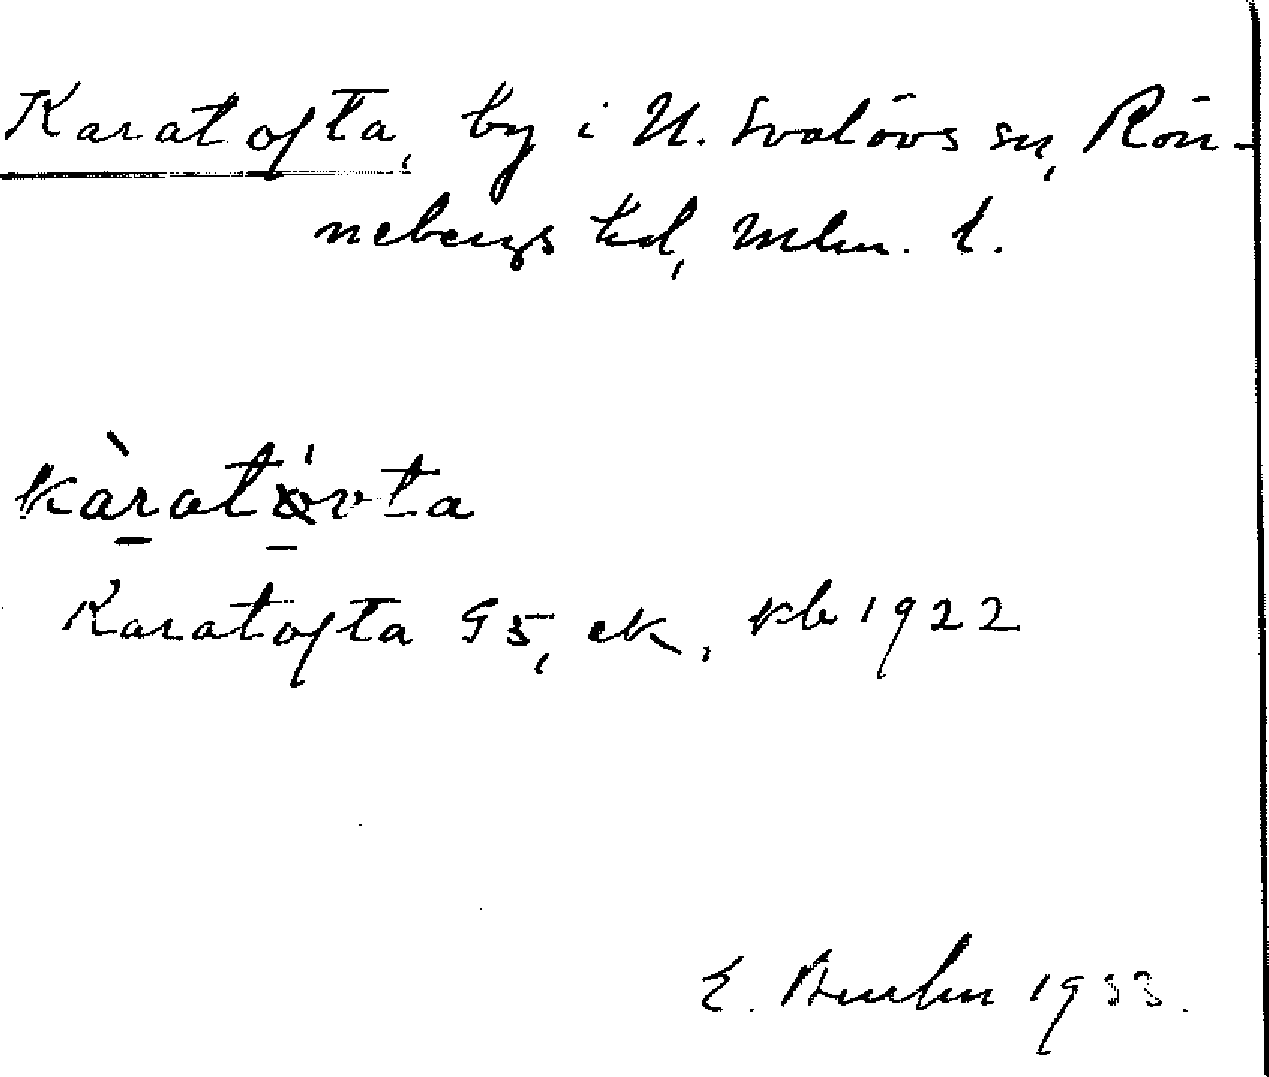 Karatofta, by i N. Svalövs sn, Rön-
nebergs hd, Mlm. l.
kàratòvta
Karatofta 95, ek, kb 1922
E. 1933.